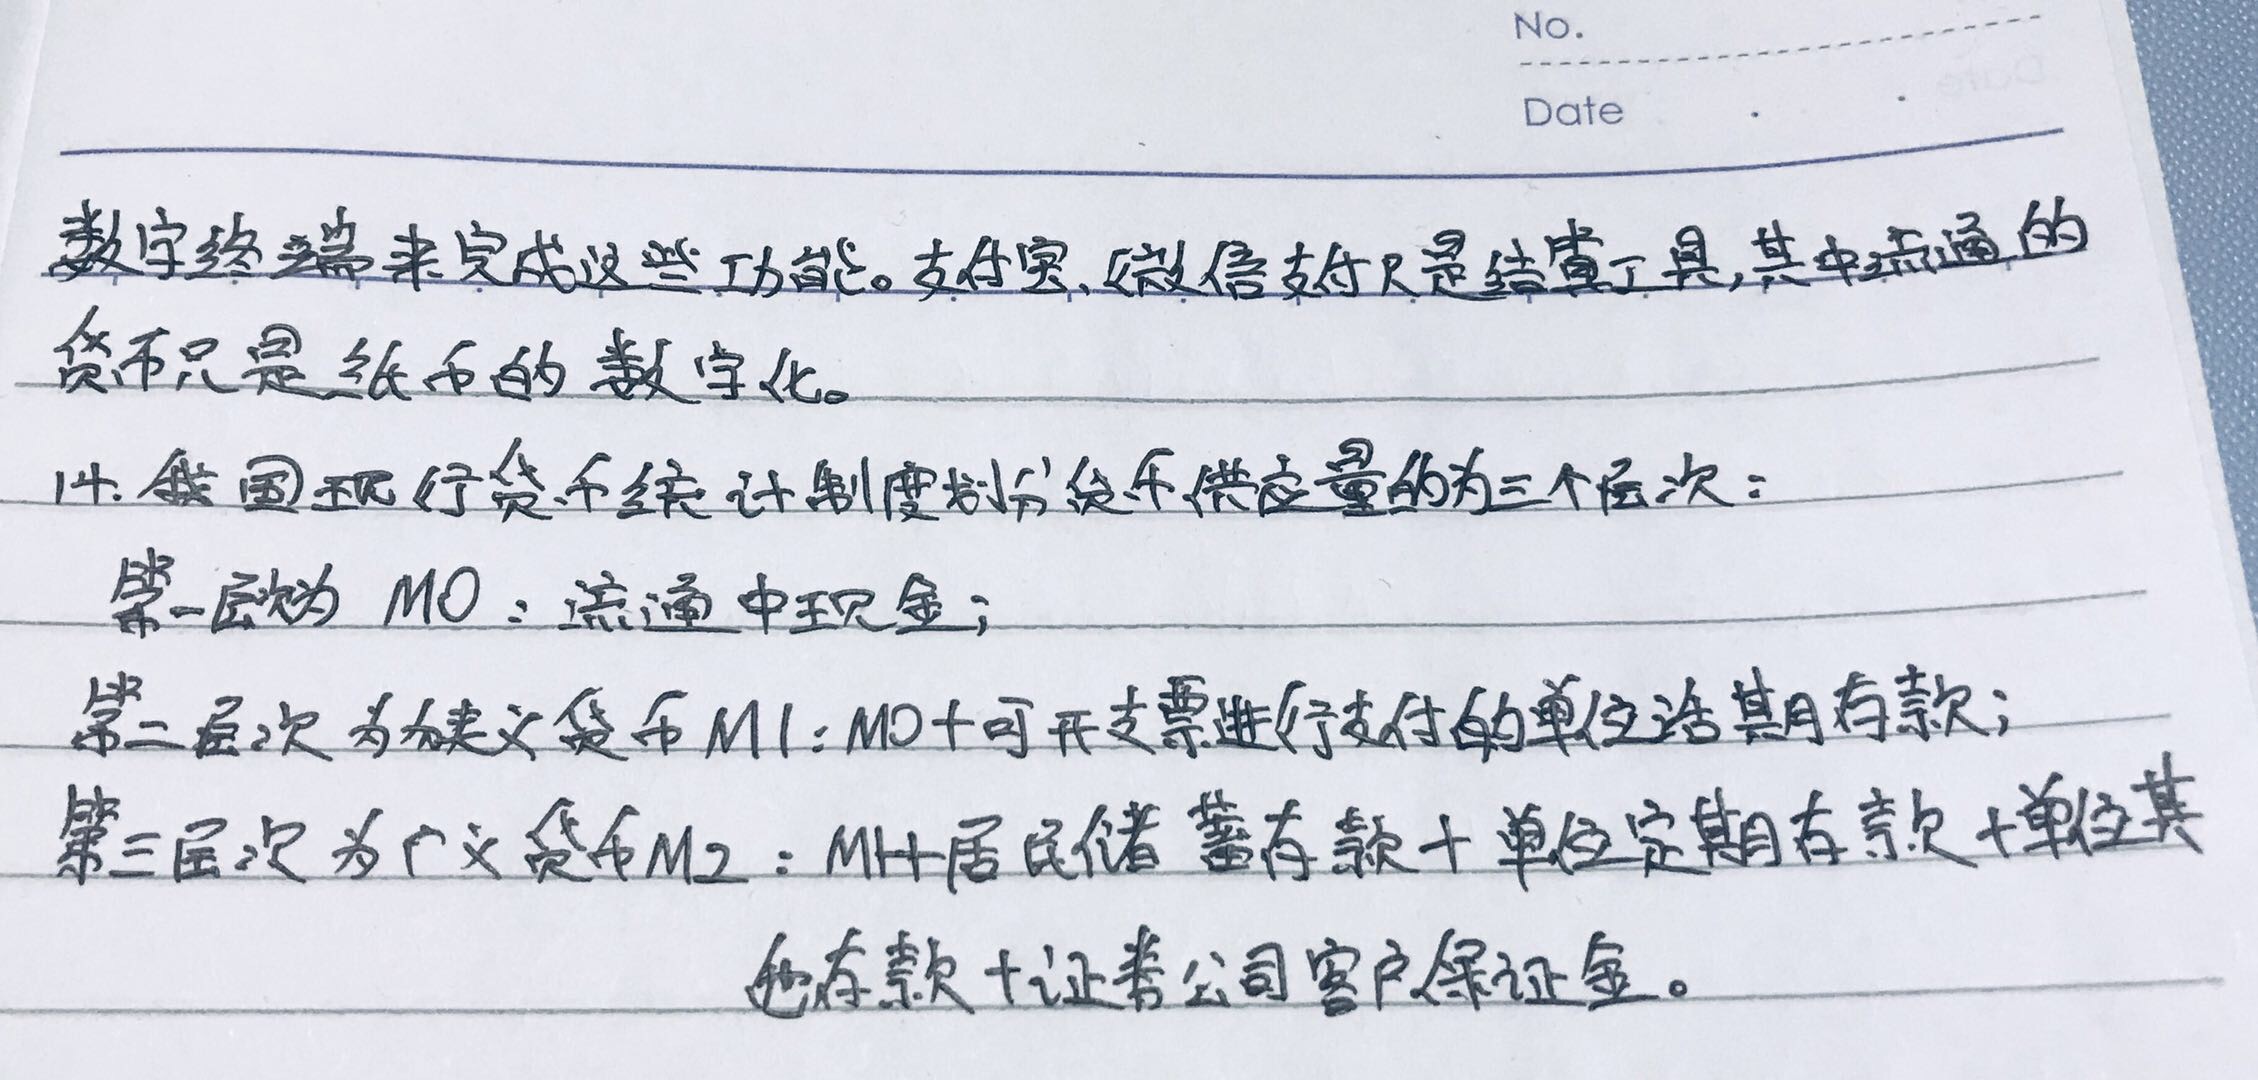 No.
Date
数字终端来完成这些功能。支付宝、微信支付只是结算工具,其中流通的
货币只是纸币的数字化。
14.我国现行货币统计制度划分货币供应量的为三个层次:
第一层次为 M0:流通中现金;
第二层次为狭义货币M1:M0+可开支票进行支付的单位活期存款;
第三层次为广义货币M2:M1+居民储蓄存款+单位定期存款+单位其
他存款+证券公司客户保证金。